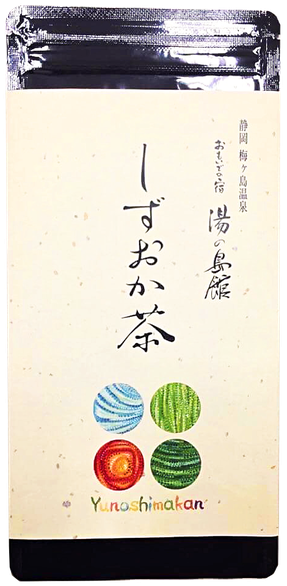 静岡 梅ヶ島温泉
おもいでの宿 湯の島館
しずおか茶
Yunoshimakan